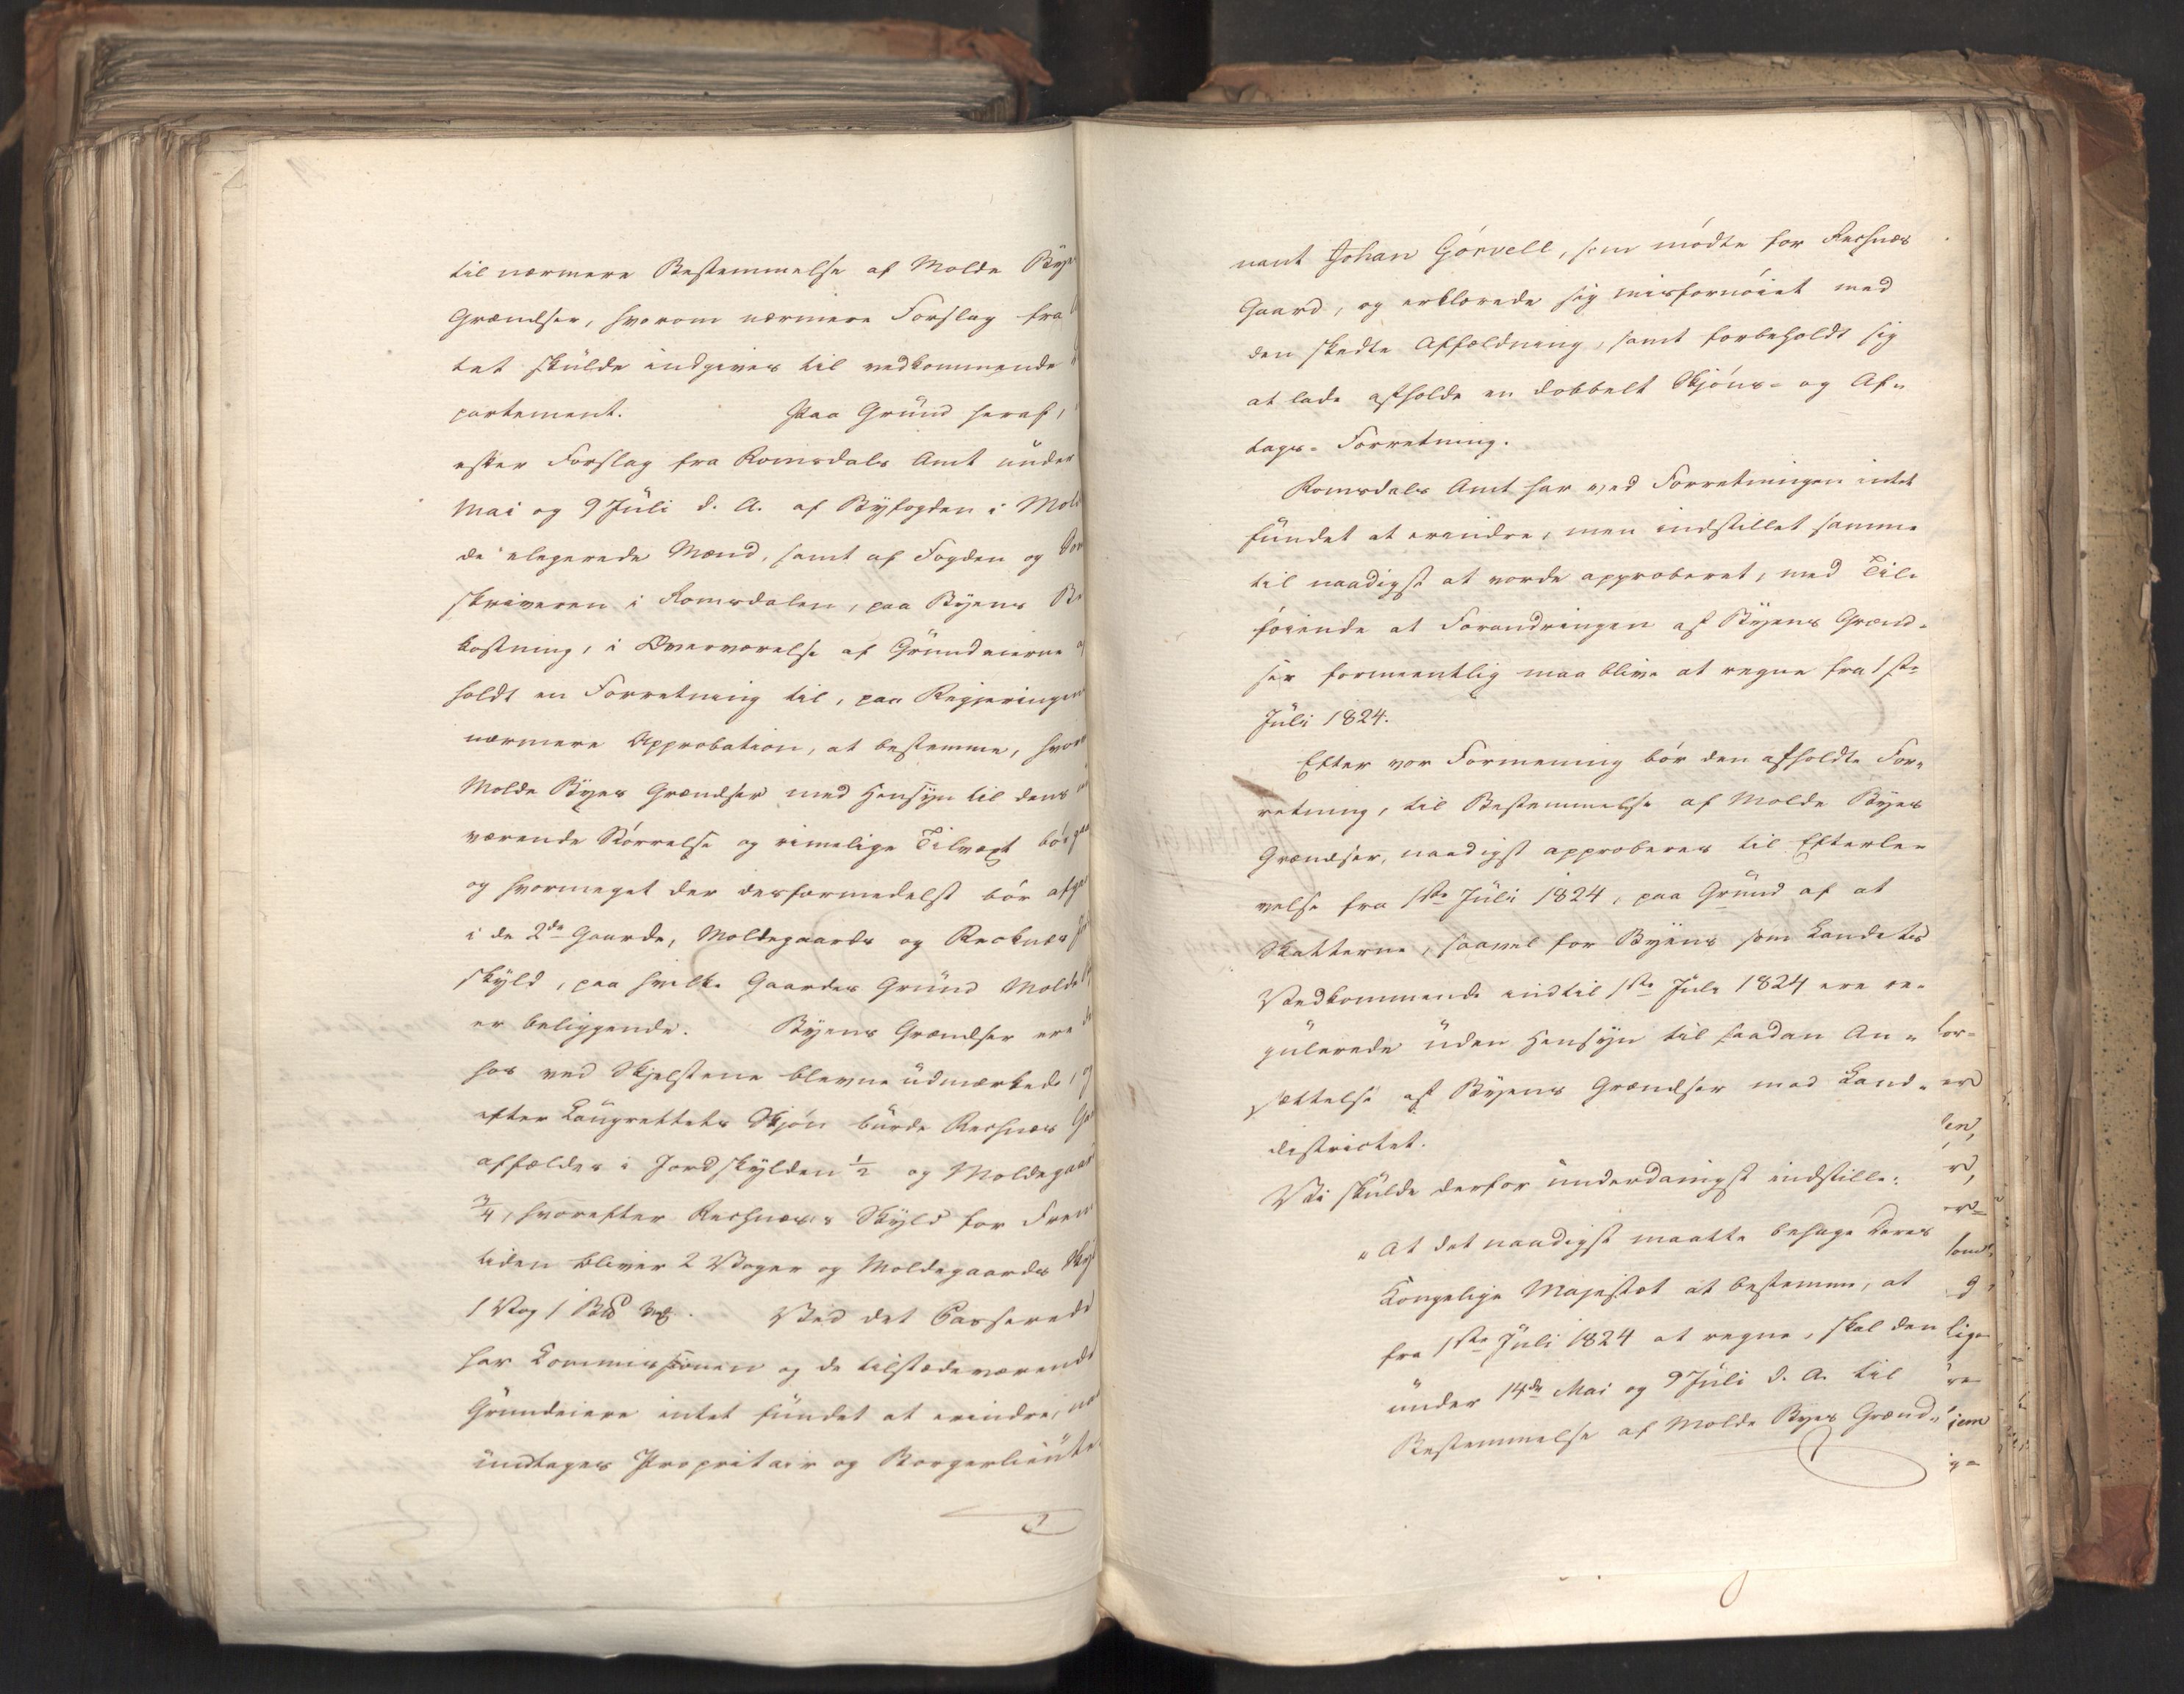 til nærmere Bestemmelse af Molde Bye
Grændser, hvorom nærmere Forslag fra
tet skulde indgives til vedkommende
partement. Paa Grund heraf,
efter Forslag fra Romsdals Amt under
Mai og 9 Juli d. A. af Byfogden i Mol
de elegerede Mænd, samt af Fogden og Sor
skriveren i Romsdalen, paa Byens Be
kostning, i Overværelse af Grundeierne
holdt en Forretning til, paa Regjeringen
nærmere Approbation, at bestemme, hvor
Molde Byes Grændser med Hensyn til dens
værende Størrelse og rimelige Tilvæxt bør
og hvormeget der desformedelst bør afga
i de 2de Gaarde, Moldegaards og Recknæs
skyld, paa hvilke Gaardes Grund Molde
er beliggende. Byens Grændser ere
hos ved Skjelstene blevne udmærkede, og
efter Laugrettets Skjøn burde Rechnæs Ga
affældes i Jordskylden 1/2 og Moldegaard
3/4, hvorefter Rechnæs's Skyld for Frem
tiden bliver 2 Voger og Moldegaards Sky
1 Vog 1 Ved det Passerede
har Commissionen og de tilstædeværende
Grundeiere intet fundet at erindre,
undtages Propritair og Borgerlieute
nant Johan Gørvell, som mødte for Rechnæs
Gaard, og erklærede sig misfornøiet med
den skedte Affældning, samt forbeholdt sig
at lade afholde en dobbelt Skjøns- og Af-
tags- Forretning.
Romsdals Amt har ved Forretningen intet
fundet at erindre, men indstillet samme
til naadigst at vorde approberet, med Til-
føiende at Forandringen af Byens Grænd-
ser formeentlig maa blive at regne fra 1ste
Juli 1824.
Efter vor Formening bør den afholdte For-
retning, til Bestemmelse af Molde Byes
Grændser, naadigst approberes til Efterle-
velse fra 1ste Juli 1824, paa Grund af at
Skatterne, saavel for Byens som Landets
Vedkommende indtil 1ste Juli 1824 ere re-
gulerede uden Hensyn til saadan An-
sættelse af Byens Grændser med Land-
districtet.
Vi skulde derfor underdanigst indstille:
"At det naadigst maatte behage Deres
Kongelige Majestæt at bestemme, at
fra 1ste Juli 1824 at regne, skal den
under 14de Mai og 9 Juli d. A. til
Bestemmelse af Molde Byes Grænd-